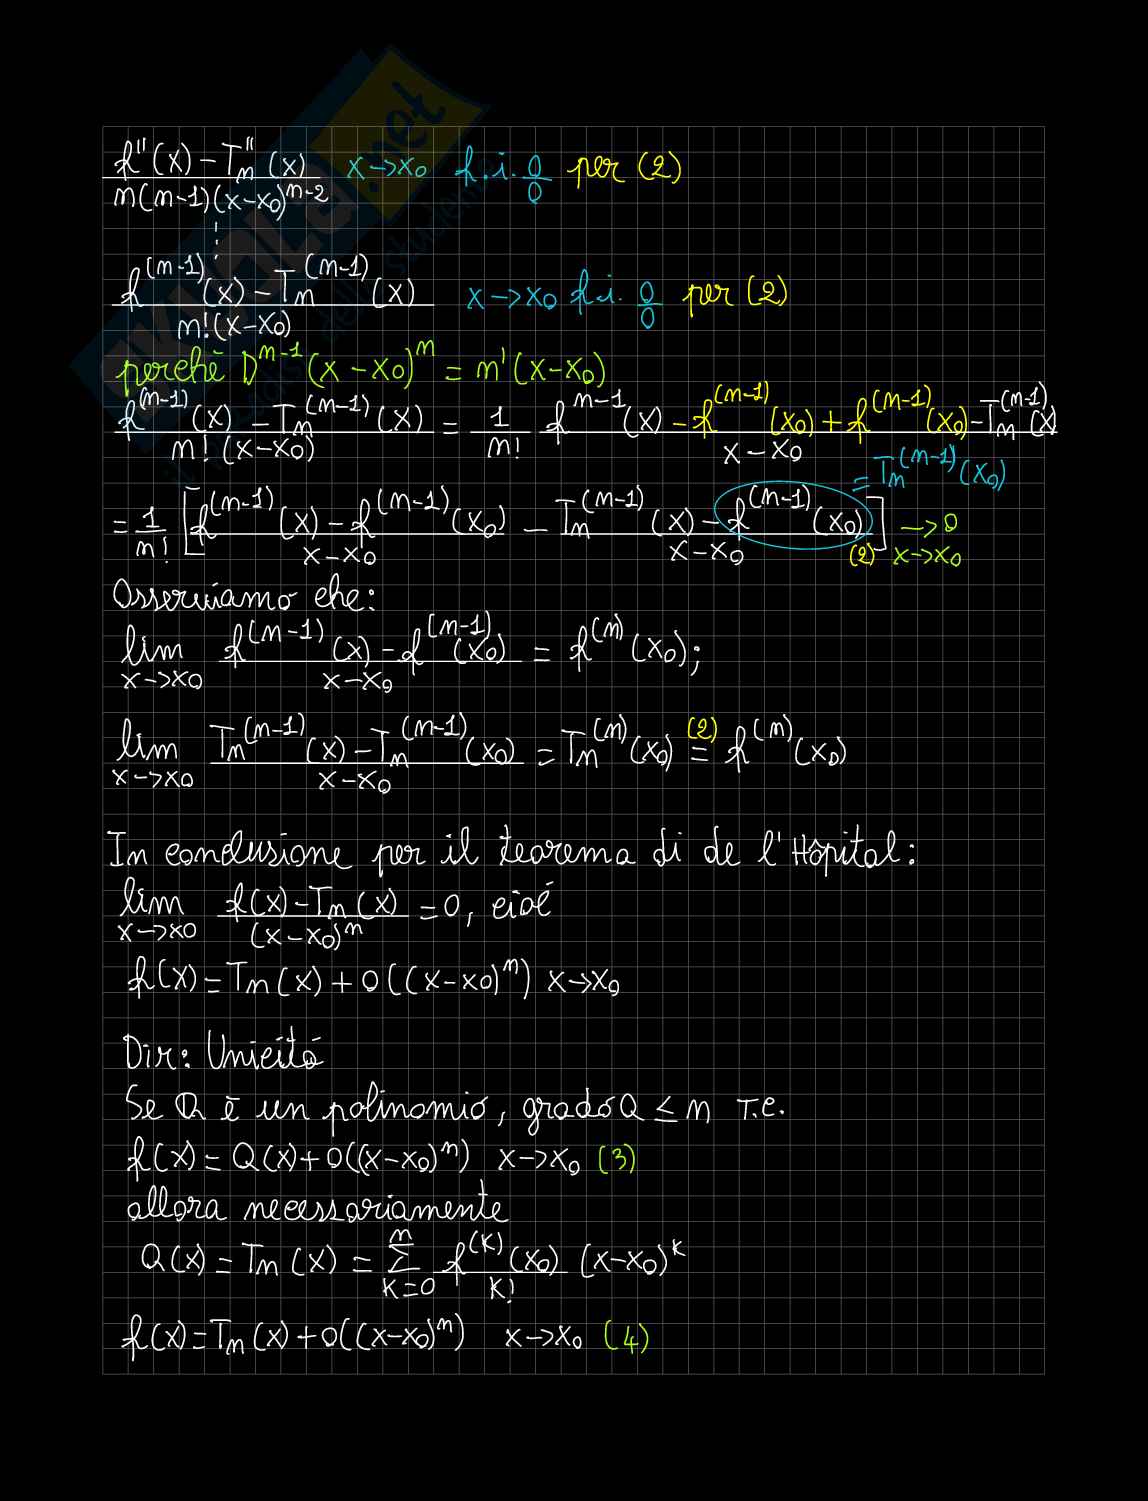 f''(x) - Tn''(x) / n(n-1)(x-x0)^{n-2} x→x0 f.i. 0/0 per (2)
⋮
f^{(n-1)}(x) - Tn^{(n-1)}(x) / n!(x-x0) x→x0 f.i. 0/0 per (2)
perché D^{n-1}(x-x0)^n = n!(x-x0)
f^{(n-1)}(x) - Tn^{(n-1)}(x) / n!(x-x0) = 1/n! f^{n-1}(x) - f^{(n-1)}(x0) + f^{(n-1)}(x0) - Tn^{(n-1)}(x) / x-x0
= Tn^{(n-1)}(x0)
= 1/n! [ f^{(n-1)}(x) - f^{(n-1)}(x0) / x-x0 - Tn^{(n-1)}(x) - f^{(n-1)}(x0) / x-x0 ] (2) → 0 x→x0
Osserviamo che:
lim x→x0 f^{(n-1)}(x) - f^{(n-1)}(x0) / x-x0 = f^{(n)}(x0);
lim x→x0 Tn^{(n-1)}(x) - Tn^{(n-1)}(x0) / x-x0 = Tn^{(n)}(x0) =(2) f^{(n)}(x0)
In conclusione per il teorema di de l'Hôpital:
lim x→x0 f(x) - Tn(x) / (x-x0)^n = 0, cioè
f(x) = Tn(x) + o((x-x0)^n) x→x0
Dir: Unicità
Se Q è un polinomio, grado Q ≤ n T.c.
f(x) = Q(x) + o((x-x0)^n) x→x0 (3)
allora necessariamente
Q(x) = Tn(x) = Σ_{k=0}^{n} f^{(k)}(x0) / k! (x-x0)^k
f(x) = Tn(x) + o((x-x0)^n) x→x0 (4)